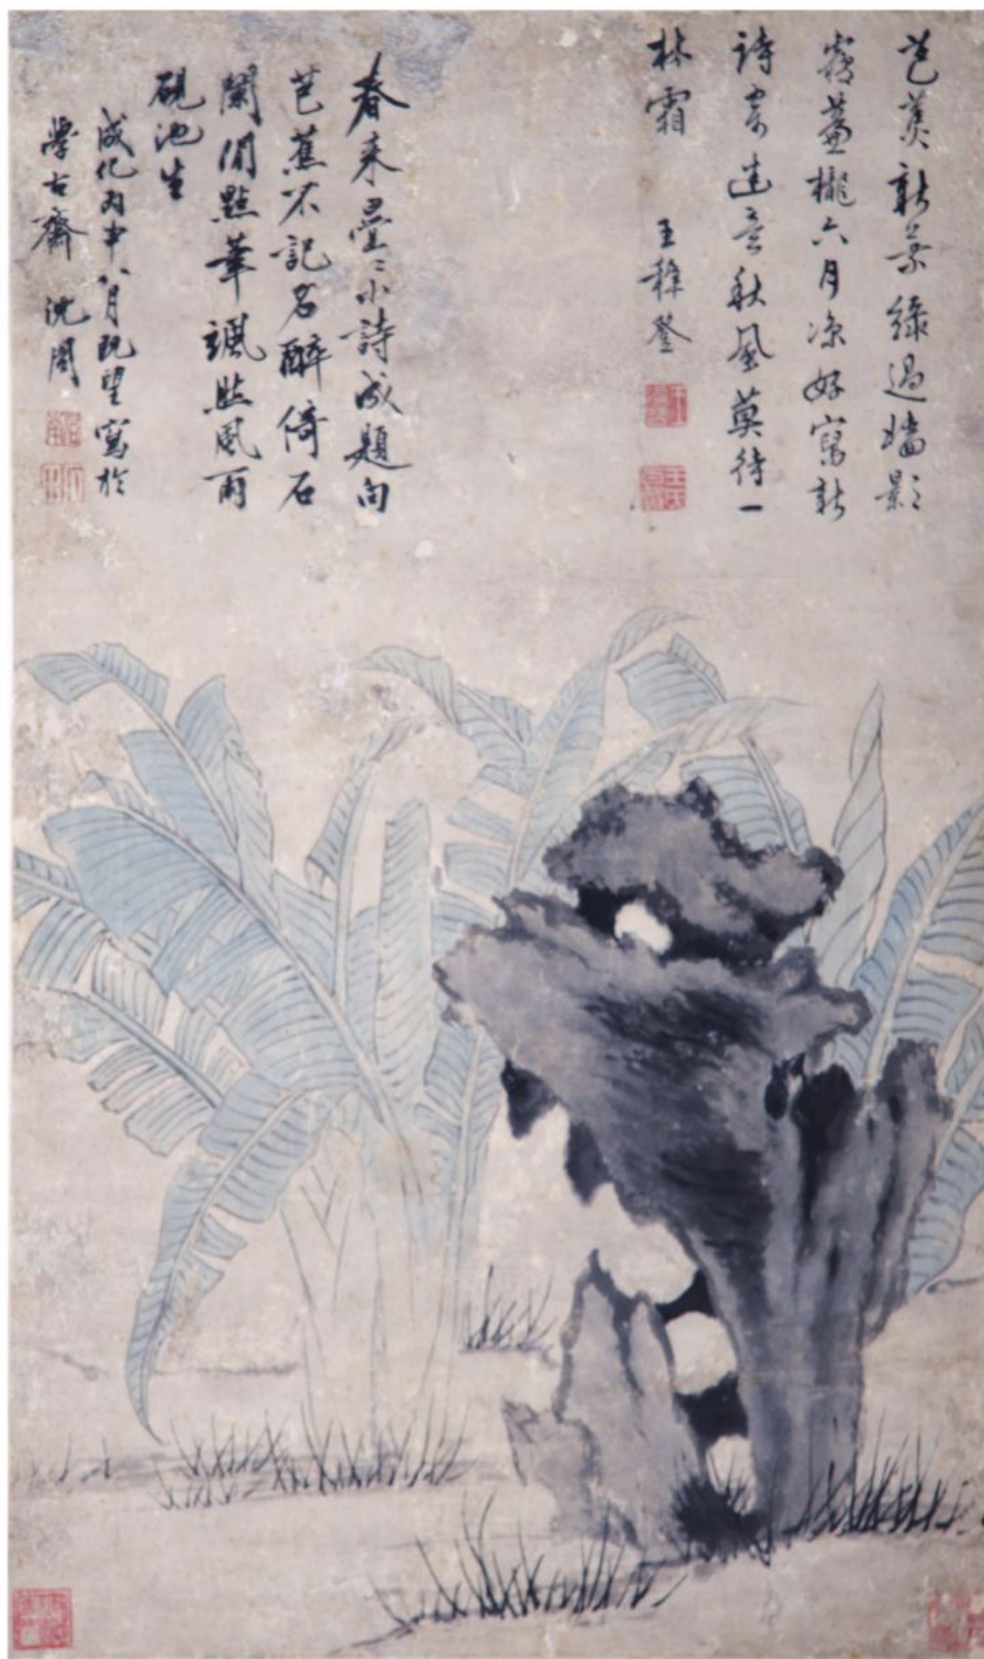 芭蕉新葉綠過墻影
落簾櫳六月凉好寫新
詩寄遠意秋風莫待一
林霜 王穉登
春來疊〻小詩成題向
芭蕉不記名醉倚石
闌閒點筆颯然風雨
硯池生
成化丙申八月既望寫於
學古齋 沈周